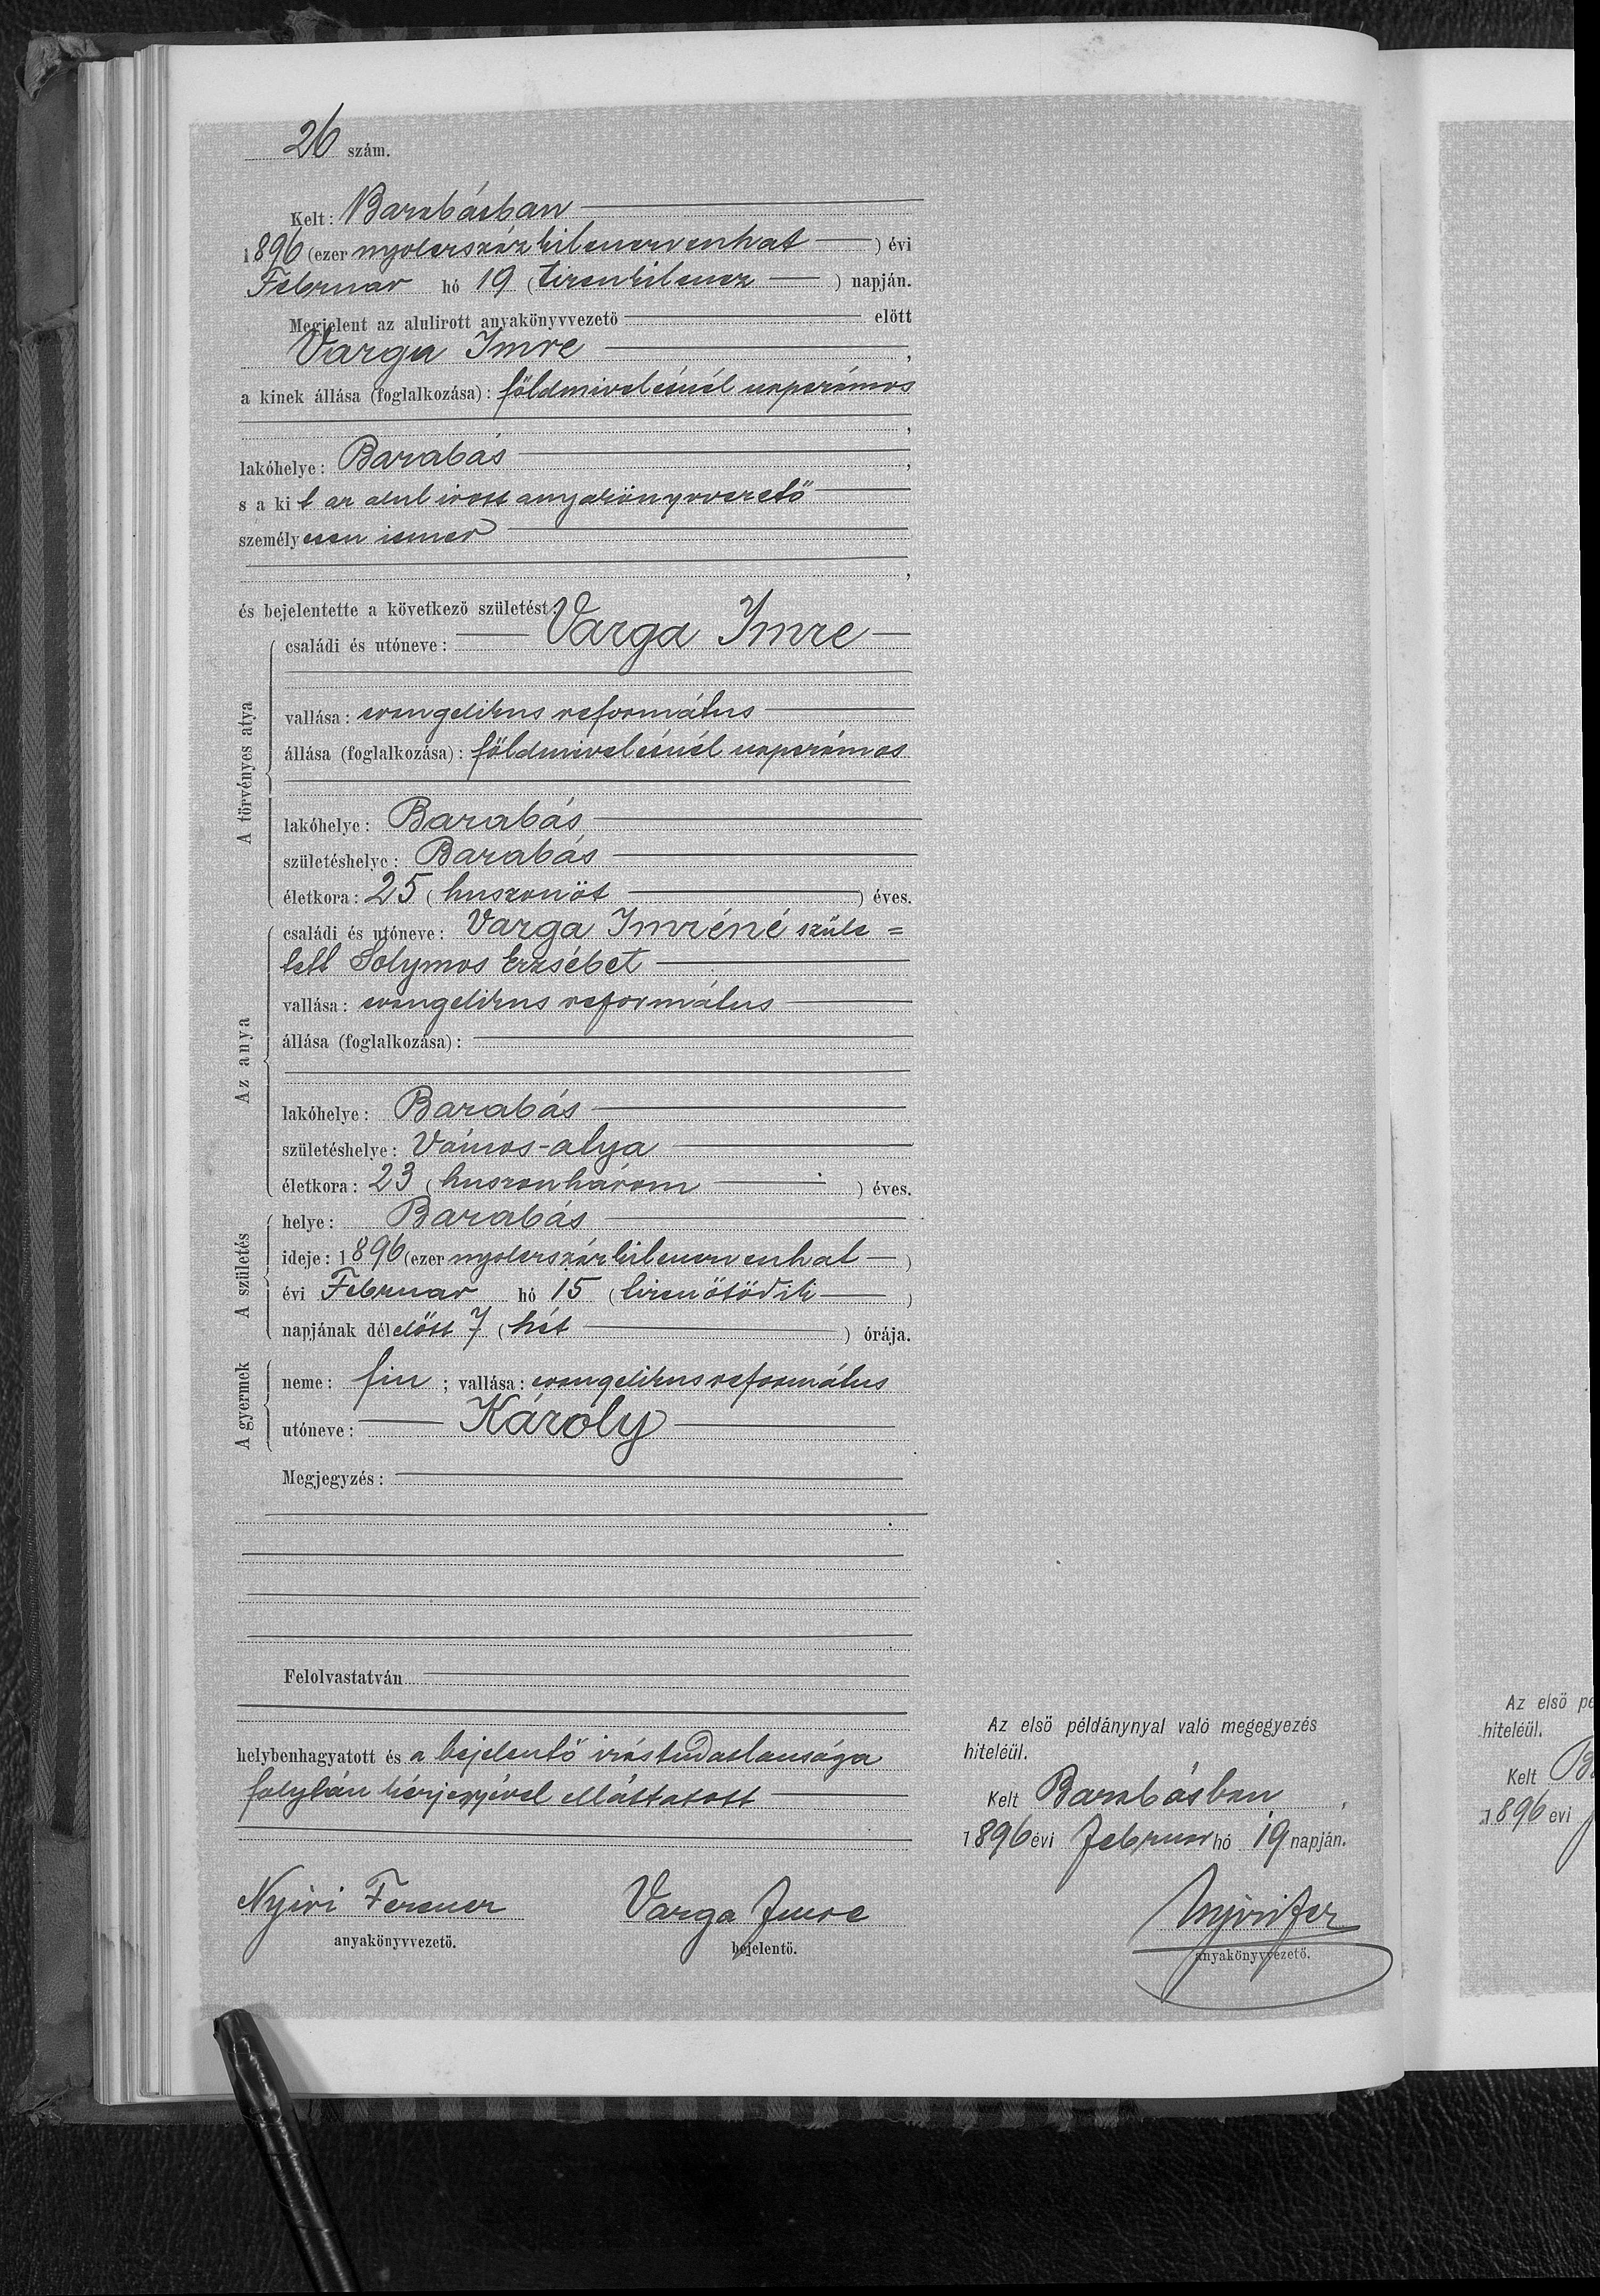 26 szám.
Kelt: Barabásban
1896 (ezer nyolczszázkilenczvenhat) évi
Februar hó 19 (tizenkilencz) napján.
Megjelent az alulirott anyakönyvvezető előtt
Varga Imre,
a kinek állása (foglalkozása): földmivelésnél napszámos
,
lakóhelye: Barabás,
s a kit az alulirott anyakönyvvezető
személyesen ismer
,
és bejelentette a következő születést:
A törvényes atya
családi és utóneve: Varga Imre
vallása: evangelikus református
állása (foglalkozása): földmivelésnél napszámos
lakóhelye: Barabás
születéshelye: Barabás
életkora: 25 (huszonöt) éves.
Az anya
családi és utóneve: Varga Imréné szüle=
tett Solymos Erzsébet
vallása: evangelikus református
állása (foglalkozása):
lakóhelye: Barabás
születéshelye: Vámos-atya
életkora: 23 (huszonhárom) éves.
A születés
helye: Barabás
ideje: 1896 (ezer nyolczszázkilenczvenhat)
évi Februar hó 15 (tizenötödik)
napjának délelőtt 7 (hét) órája.
A gyermek
neme: fiu; vallása: evangelikus református
utóneve: Károly
Megjegyzés:
Felolvastatván
helybenhagyatott és a bejelentő irástudatlansága
folytán kézjegyével elláttatott
Nyiri Ferencz
anyakönyvvezető.
Varga Imre
bejelentő.
Az első példánynyal való megegyezés
hiteléül.
Kelt Barabásban,
1896 évi Februar hó 19 napján.
Nyiri Fer
anyakönyvvezető.
Az első
hiteléül.
Kelt
1896 évi